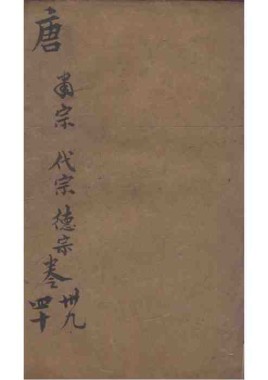 唐
肅宗 代宗 德宗 卷
卅九
四十